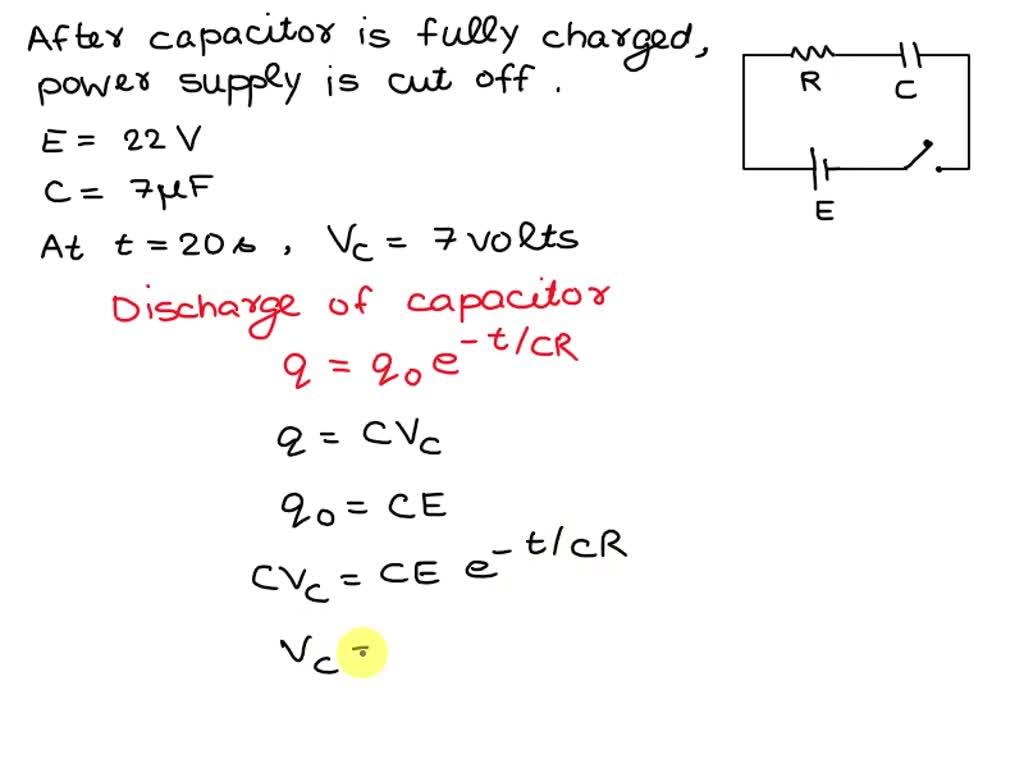 After capacitor is fully charged,
power supply is cut off.
R
C
E
E = 22 V
C = 7μF
At t = 20s, Vc = 7 volts
Discharge of capacitor
q = q₀ e^-t/CR
q = CVc
q₀ = CE
CVc = CE e^-t/CR
Vc =